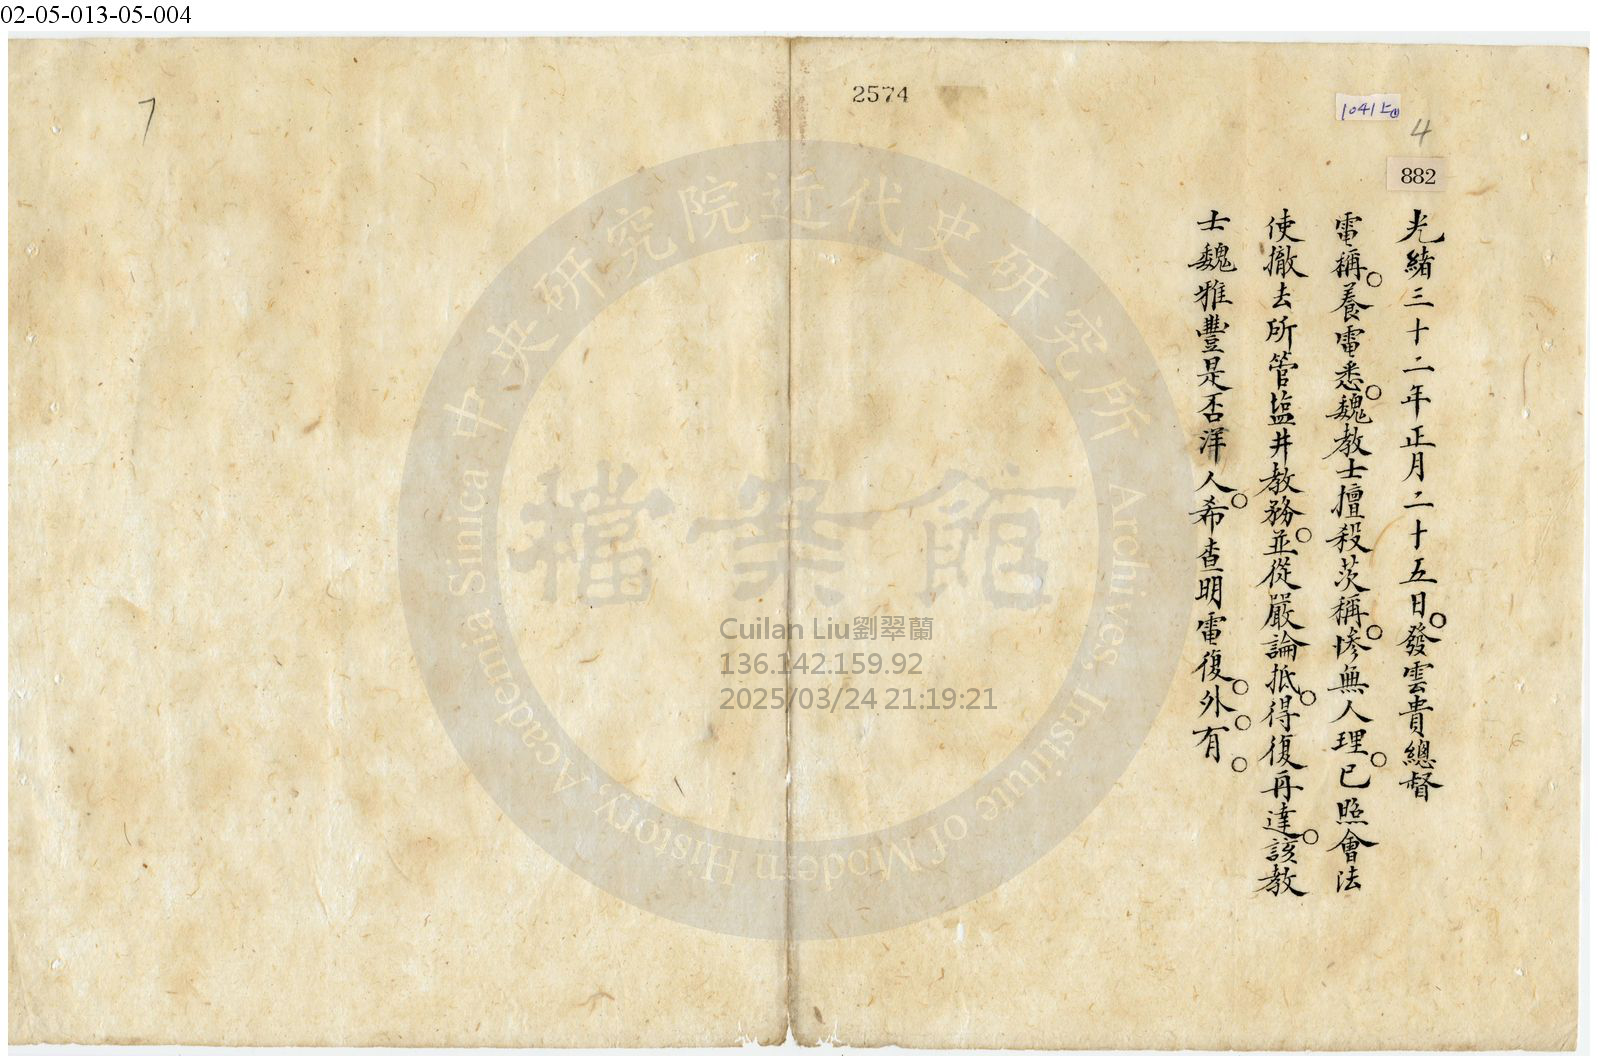 02-05-013-05-004
7
2574
1041上①
4
882
光緒三十二年正月二十五日○發雲貴總督
電稱○養電悉○魏教士擅殺茨稱○慘無人理○已照會法
使撤去所管塩井教務○並從嚴論抵○得復再達○該教
士魏雅豐是否洋人○希查明電復○外○有○
中央研究院近代史研究所
檔案館
Archives, Institute of Modern History, Academia Sinica
Cuilan Liu劉翠蘭
136.142.159.92
2025/03/24 21:19:21